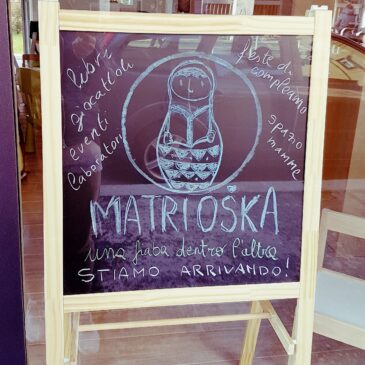 libri
giocattoli
eventi
laboratori
feste di
compleanno
spazio
mamme
MATRIOŠKA
una fiaba dentro l'altra
STIAMO ARRIVANDO!